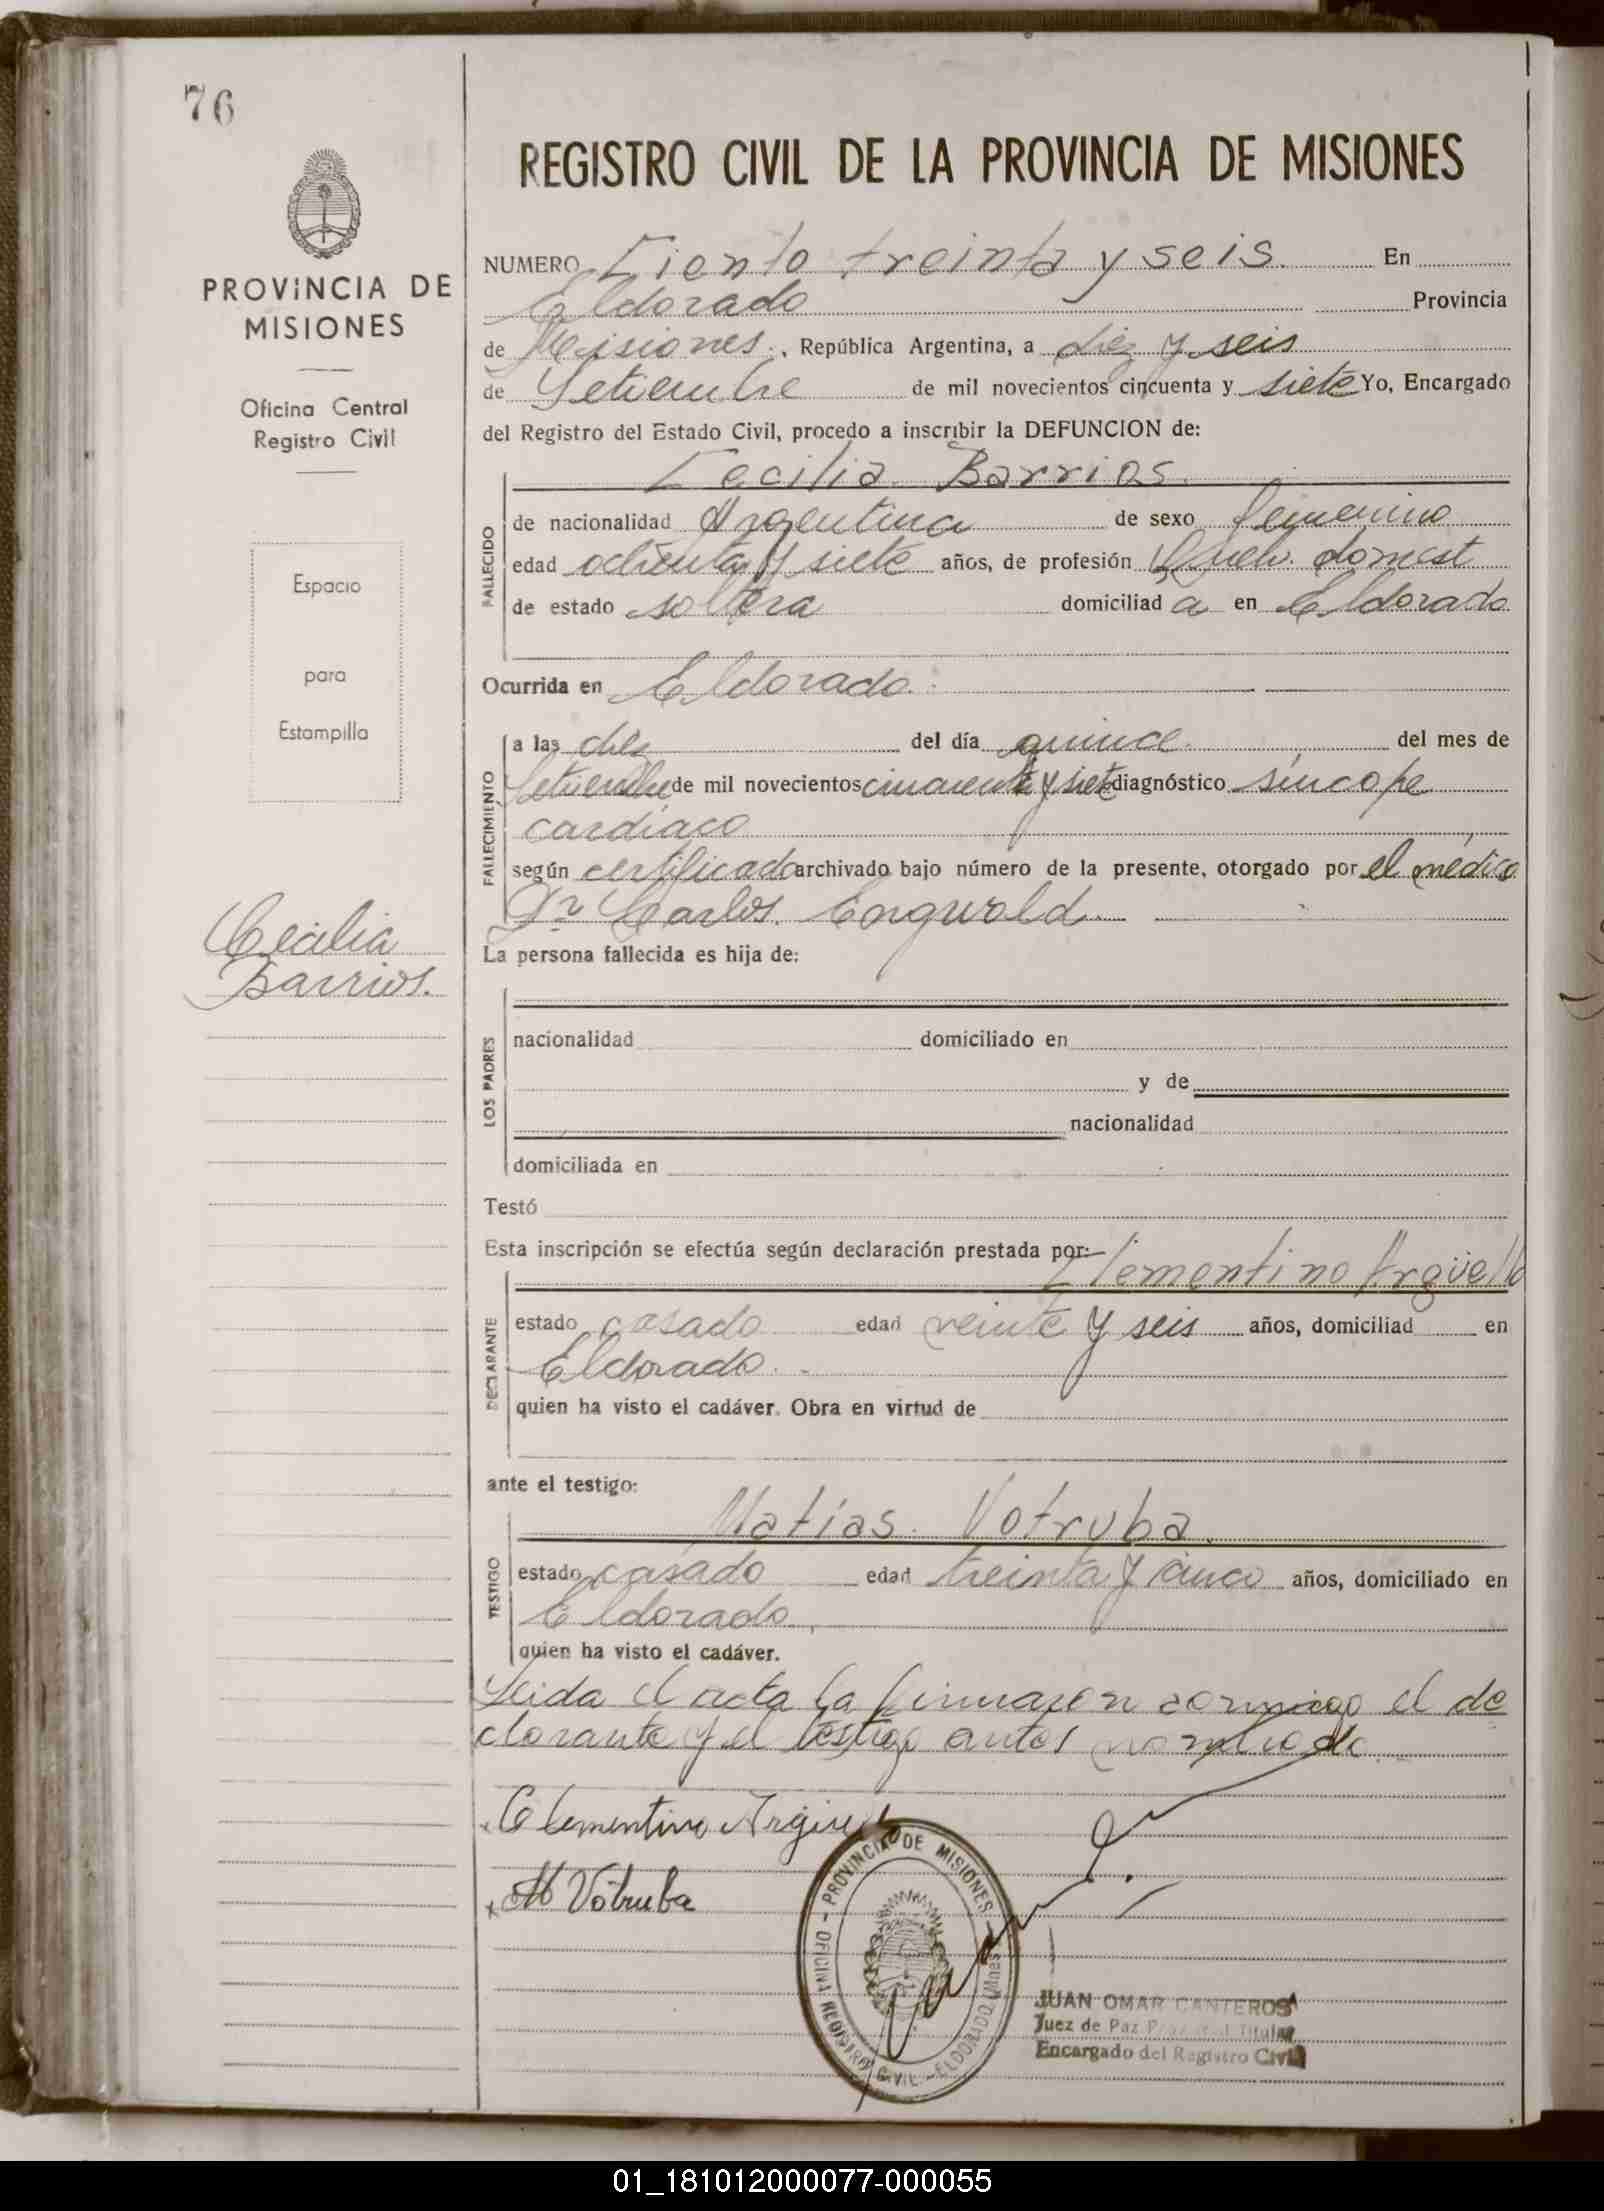 76
PROVINCIA DE
MISIONES
Oficina Central
Registro Civil
Espacio
para
Estampilla
Cecilia
Barrios.
REGISTRO CIVIL DE LA PROVINCIA DE MISIONES
NUMERO Ciento treinta y seis. En
Eldorado Provincia
de Misiones., República Argentina, a diez y seis
de Setiembre de mil novecientos cincuenta y siete Yo, Encargado
del Registro del Estado Civil, procedo a inscribir la DEFUNCION de:
Cecilia Barrios.
FALLECIDO
de nacionalidad Argentina de sexo femenino
edad ochenta y siete años, de profesión Queh. domest
de estado soltera domiciliad a en Eldorado
Ocurrida en Eldorado.
FALLECIMIENTO
a las diez del día quince. del mes de
Setiembre de mil novecientos cincuenta y siete diagnóstico síncope
cardiaco
según certificado archivado bajo número de la presente, otorgado por el médico
Dr Carlos
La persona fallecida es hija de:
LOS PADRES
nacionalidad domiciliado en
y de
nacionalidad
domiciliada en
Testó
Esta inscripción se efectúa según declaración prestada por:
Clementino Argüello
DECLARANTE
estado casado edad veinte y seis años, domiciliad en
Eldorado.
quien ha visto el cadáver. Obra en virtud de
ante el testigo:
Matías. Votruba
TESTIGO
estado casado edad treinta y cinco años, domiciliado en
Eldorado,
quien ha visto el cadáver.
Leida el acta la firmaron conmigo el de
clarante y el testigo antes nombrado.
Clementino
M Votruba
PROVINCIA DE MISIONES
OFICINA REGISTRO CIVIL - ELDORADO
JUAN OMAR CANTEROS
Juez de Paz Titular
Encargado del Registro Civil
01_181012000077-000055